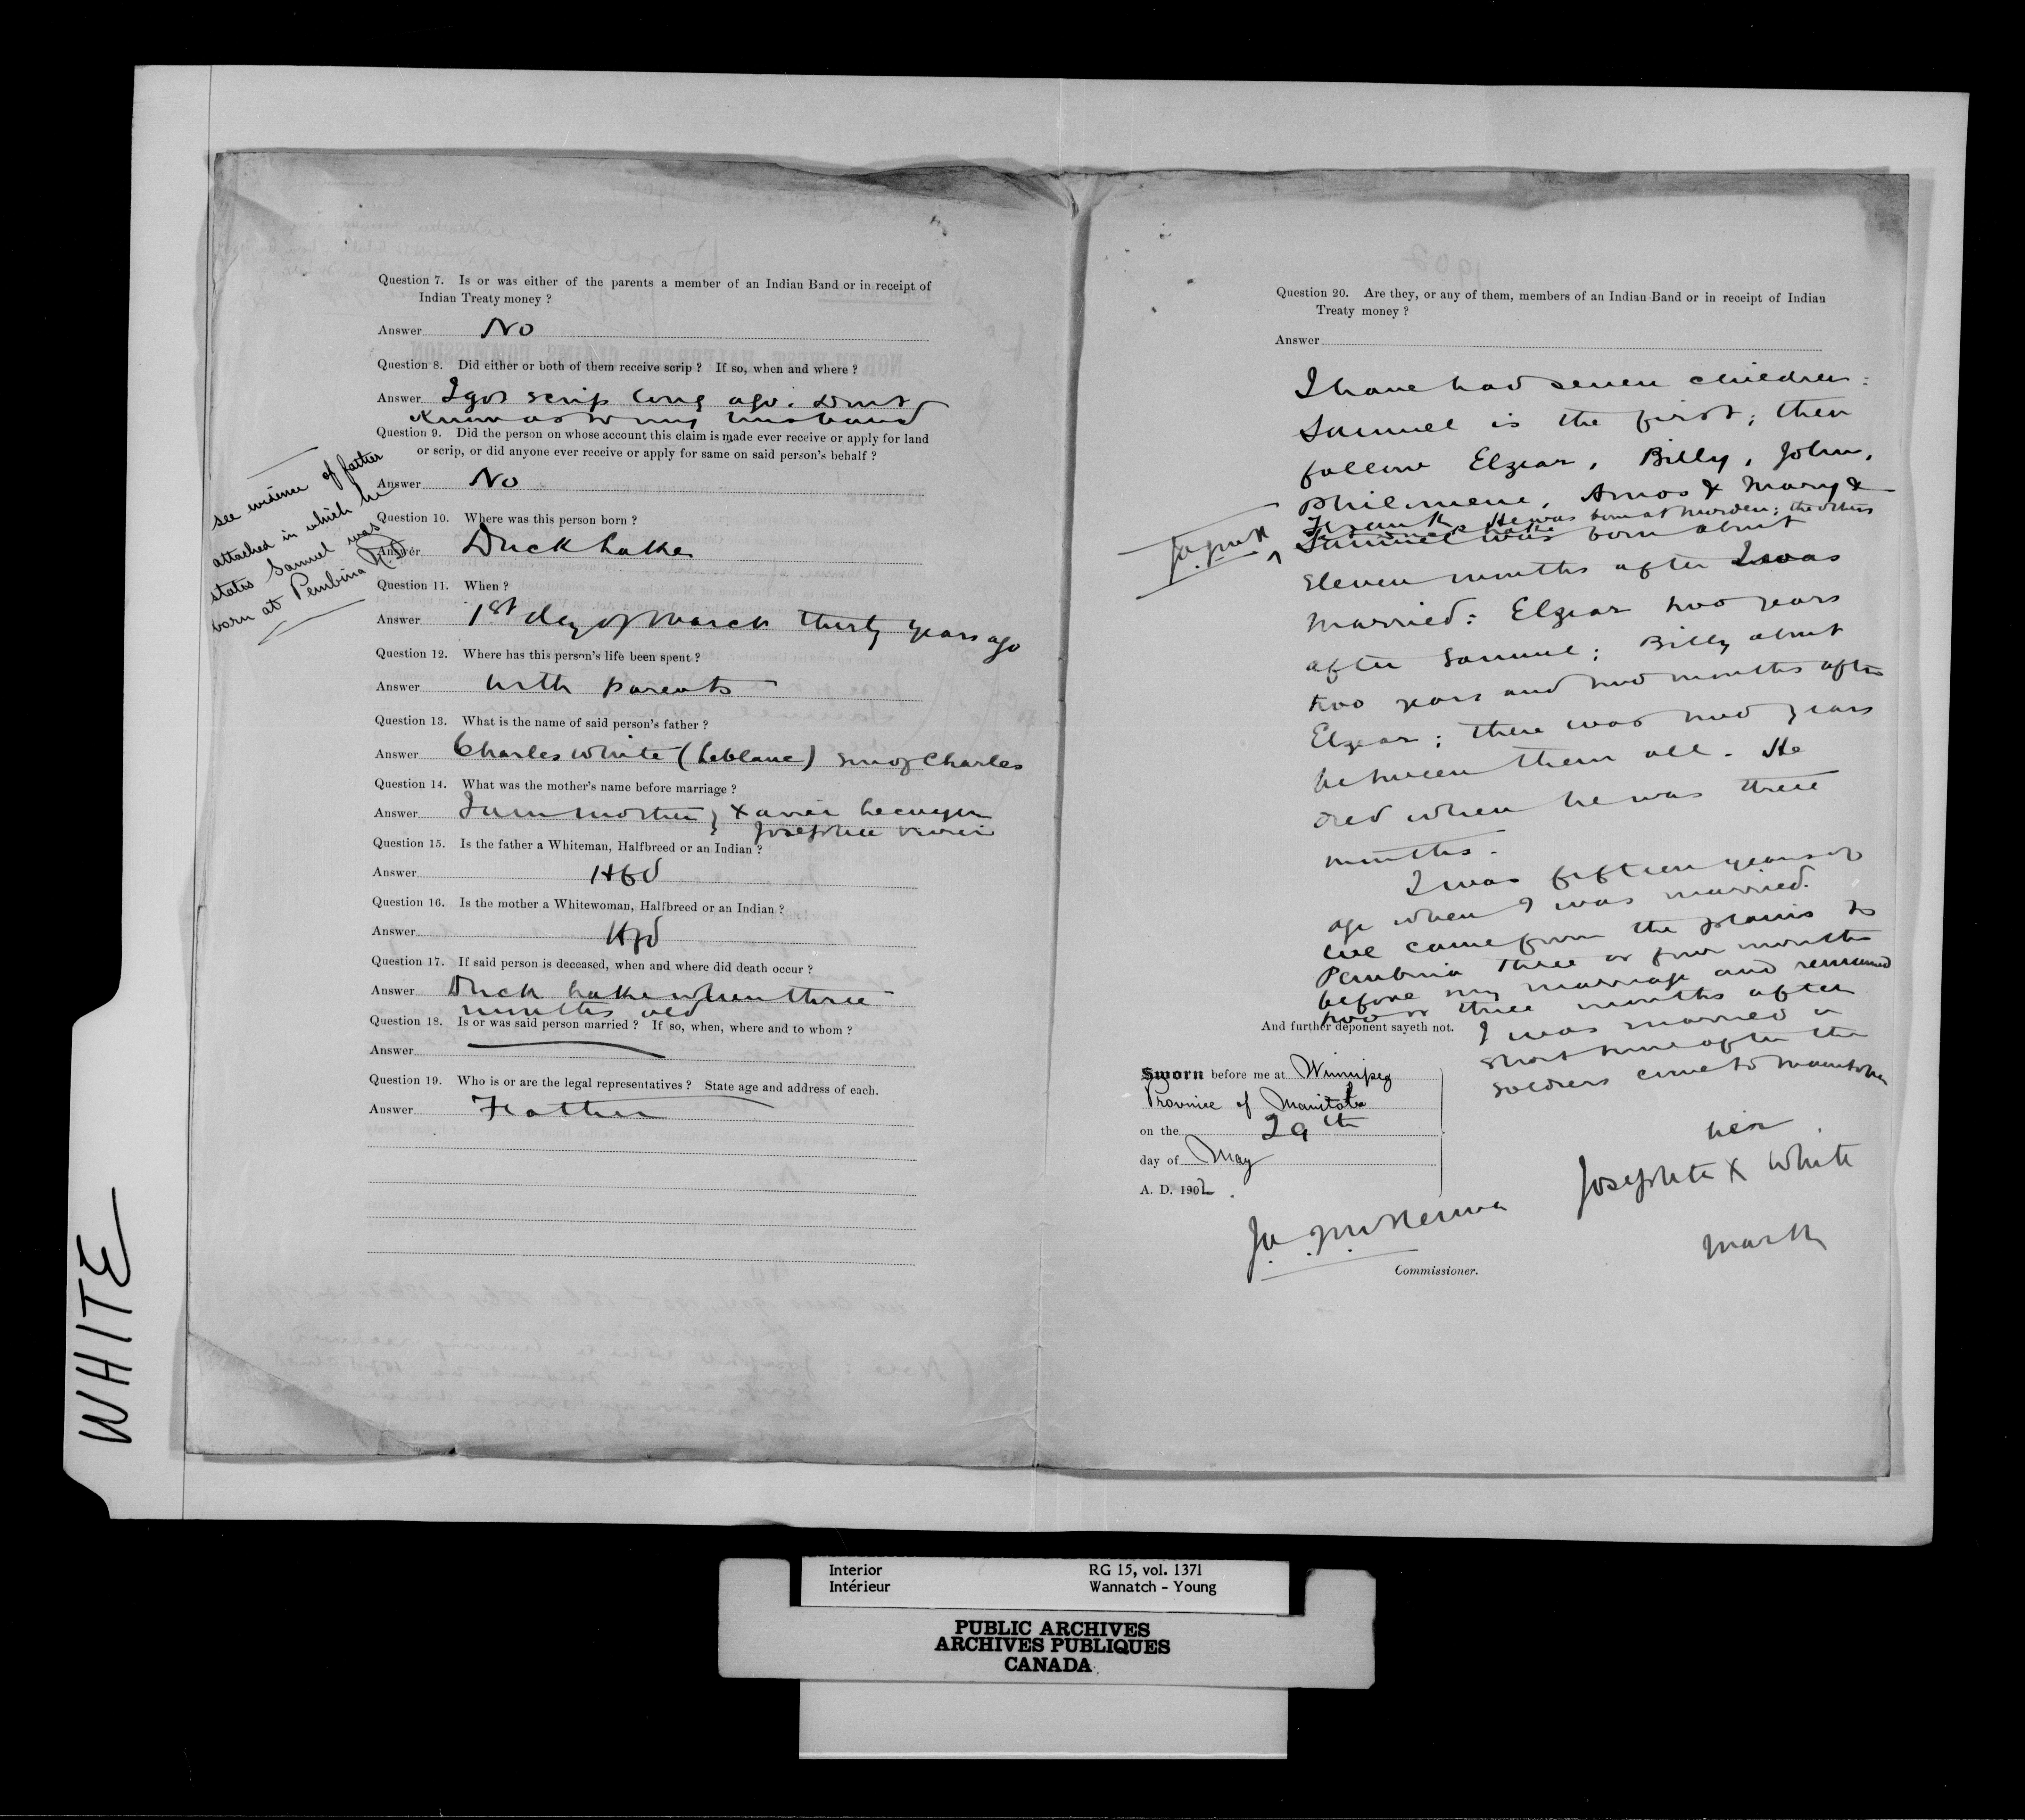 Question 7. Is or was either of the parents a member of an Indian Band or in receipt of
Indian Treaty money ?
Answer No
Question 8. Did either or both of them receive scrip ? If so, when and where ?
Answer I got scrip long ago. Dont
Know as to my husband
Question 9. Did the person on whose account this claim is made ever receive or apply for land
or scrip, or did anyone ever receive or apply for same on said person's behalf ?
Answer No
see evidence of father
attached in which he
states Samuel was
born at Pembina N.D.
Question 10. Where was this person born ?
Answer Duck Lake
Question 11. When ?
Answer 1st day of March thirty years ago
Question 12. Where has this person's life been spent ?
Answer With parents
Question 13. What is the name of said person's father ?
Answer Charles White (Leblanc) son of Charles
Question 14. What was the mother's name before marriage ?
Answer I am mother; Xavier
Josephte
Question 15. Is the father a Whiteman, Halfbreed or an Indian ?
Answer Hbd
Question 16. Is the mother a Whitewoman, Halfbreed or an Indian ?
Answer Hbd
Question 17. If said person is deceased, when and where did death occur ?
Answer Duck Lake when three
months old
Question 18. Is or was said person married ? If so, when, where and to whom ?
Answer
Question 19. Who is or are the legal representatives ? State age and address of each.
Answer Father
Question 20. Are they, or any of them, members of an Indian Band or in receipt of Indian
Treaty money ?
Answer
I have had seven children:
Samuel is the first; then
follow Elzear, Billy, John,
Philomene, Amos & Mary &
Frank. He was born at Morden; the others
Samuel was born about
eleven months after I was
married: Elzear two years
after Samuel; Billy about
two years and two months after
Elzear; there was two years
between them all. He
died when he was three
months.
I was fifteen years of
age when I was married.
We came from the plains to
Pembina three or four months
before my marriage and remained
two or three months after
I was married a
short time after the
soldiers came to Manitoba
And further deponent sayeth not.
Sworn before me at Winnipeg
Province of Manitoba
on the 29th
day of May
A. D. 1902.
her
Josephte X White
mark
J.A. J. McKenna
Commissioner.
WHITE
Interior
Intérieur
RG 15, vol. 1371
Wannatch - Young
PUBLIC ARCHIVES
ARCHIVES PUBLIQUES
CANADA